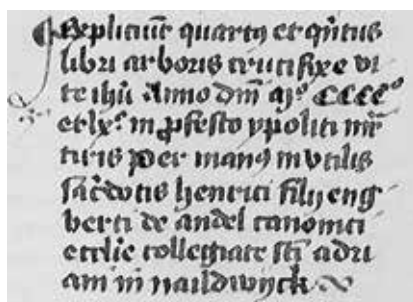 ¶ Expliciūt quartꝰ et qͥntus
libri arboris crucifixe vi
te ihū Anno dm̄ Mͦ CCCCͦ
et lxͦ in ꝓfesto ypoliti mr̄
tiris Per manꝰ inutilis
sac̄dotis henrici filij eng
berti de andel canonici
ecclīe collegiate sc̄i adri
ani in naildwijck